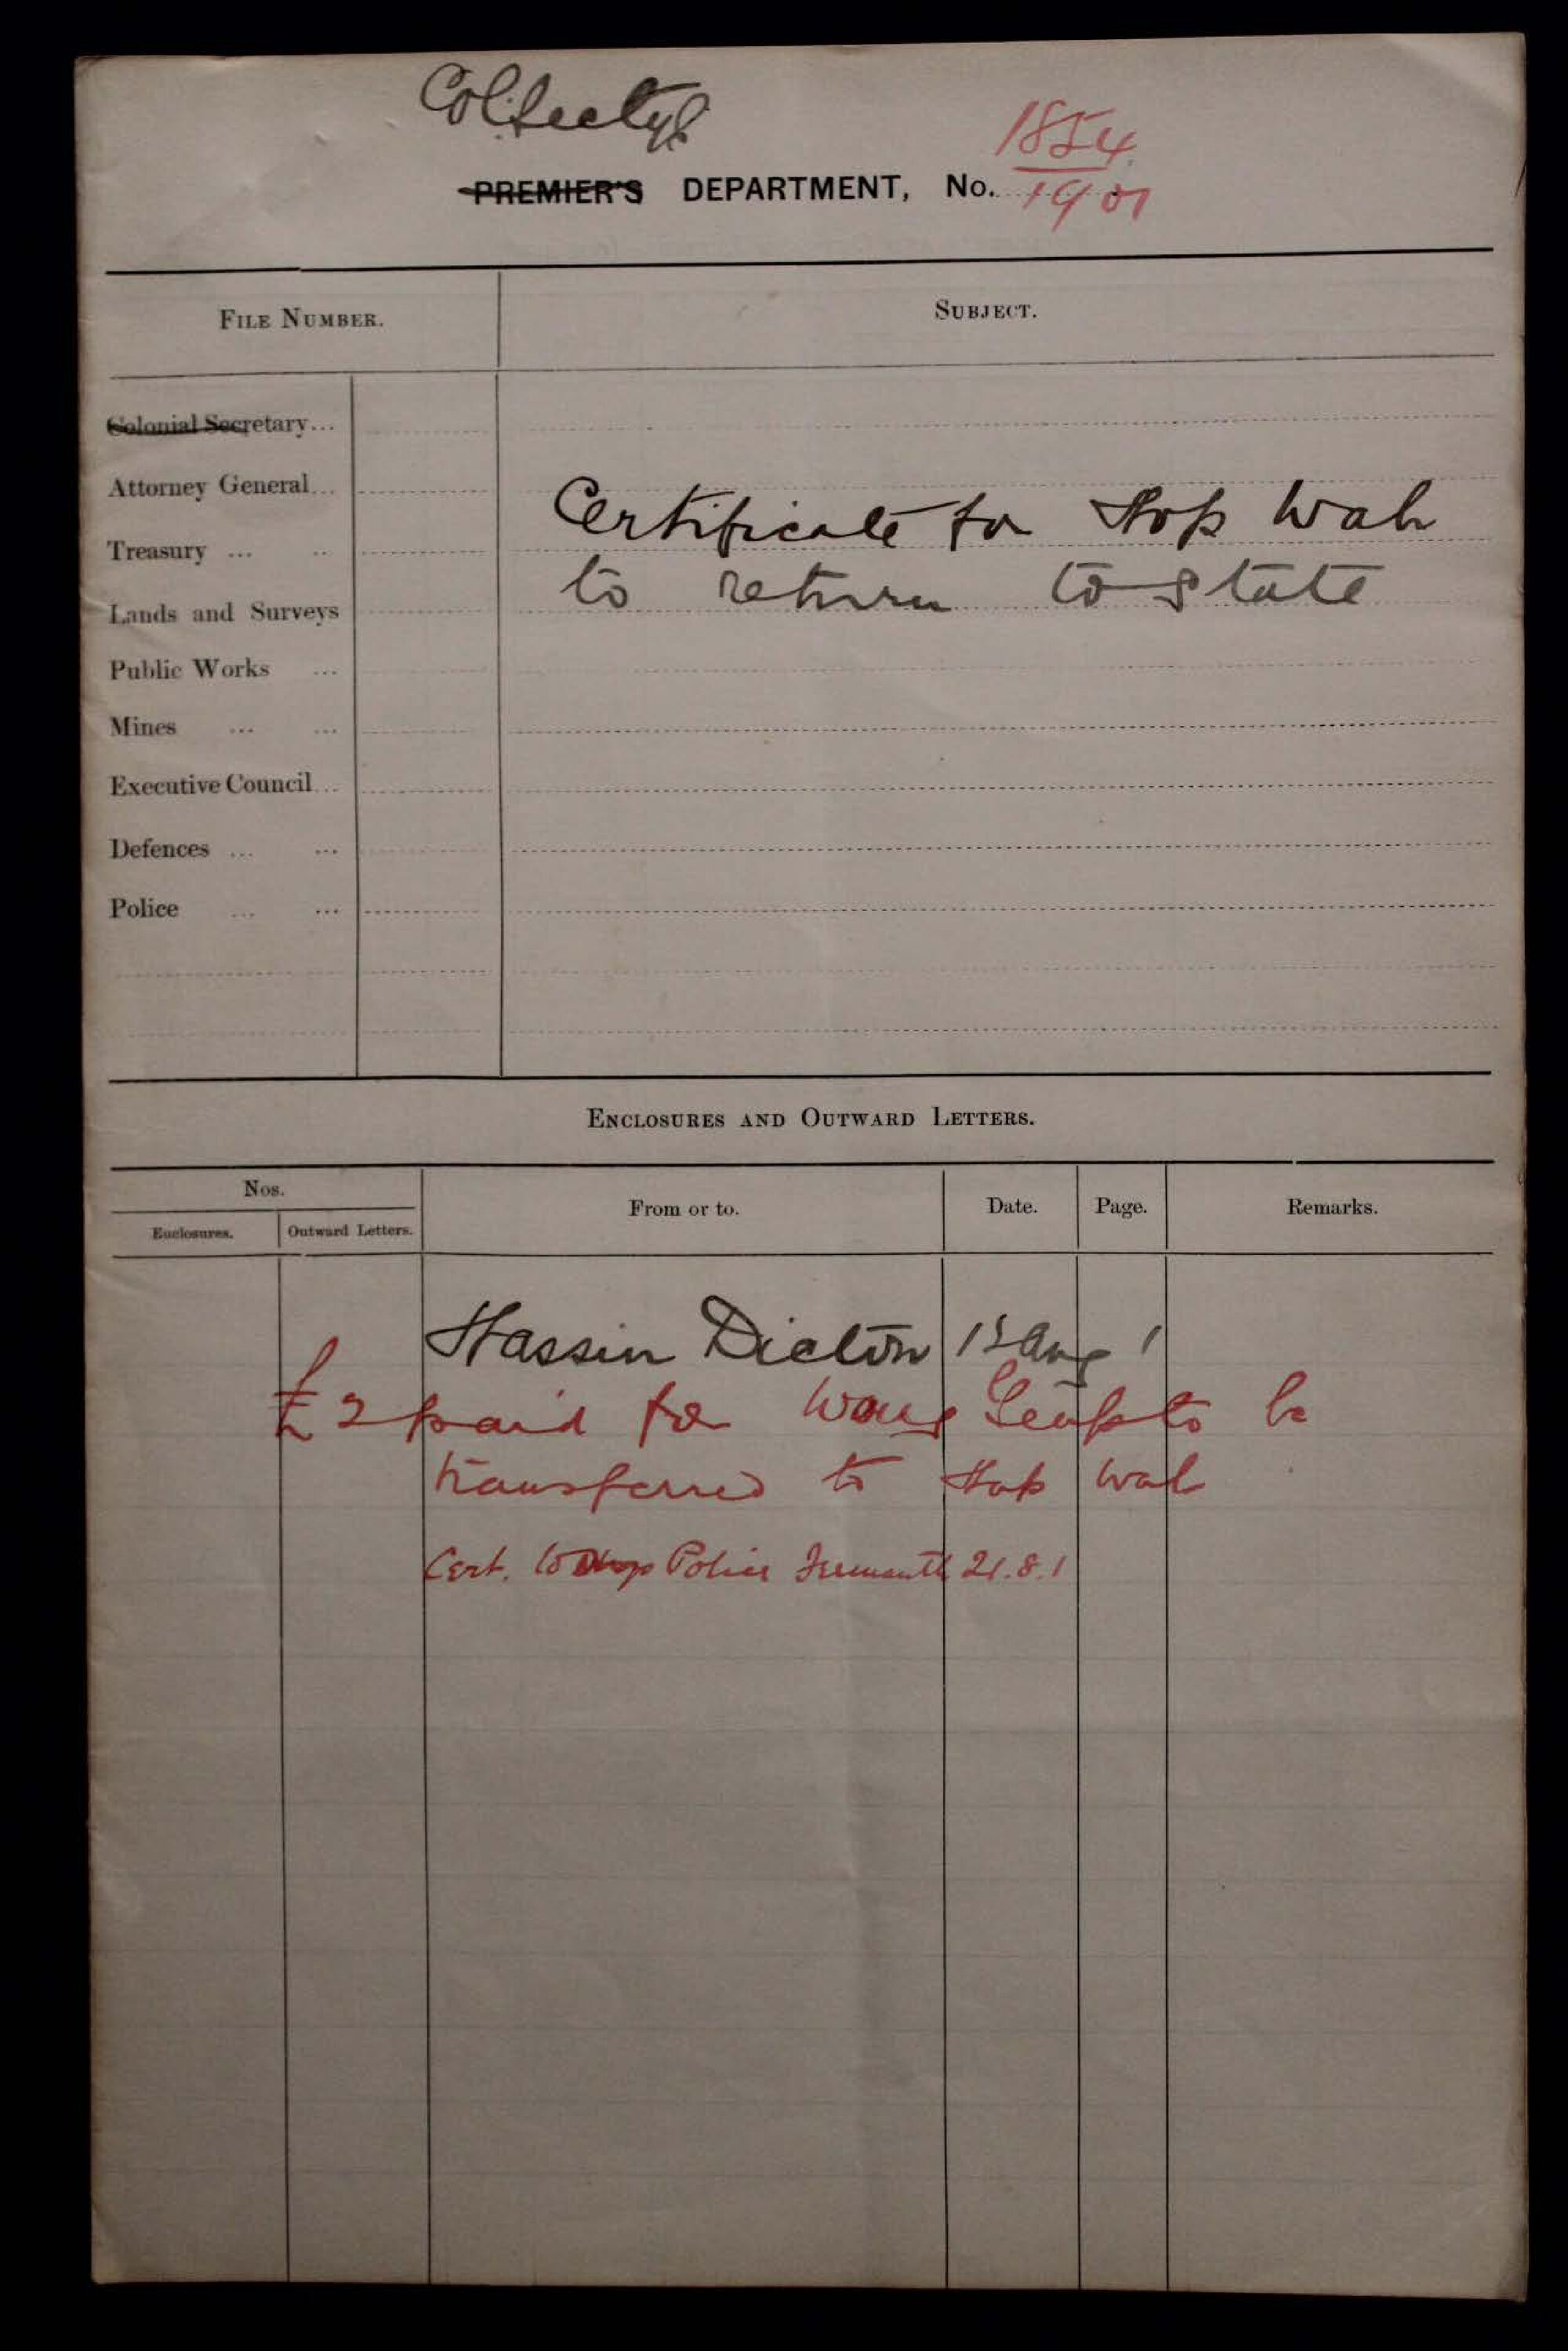 Col. Secty's
PREMIER'S DEPARTMENT, No. 1854/1901
FILE NUMBER.
SUBJECT.
Colonial Secretary...
Attorney General...
Treasury ... ..
Lands and Surveys
Public Works ...
Mines ... ...
Executive Council...
Defences ... ...
Police ... ...
Certificate for Hop Wah
to return to State
ENCLOSURES AND OUTWARD LETTERS.
Nos.
Enclosures.
Outward Letters.
From or to.
Date.
Page.
Remarks.
Hassin Dicton 15 Aug 1
£2 paid for Wong to be
transferred to Hop Wah
Cert. to Police Fremantle 21.8.1